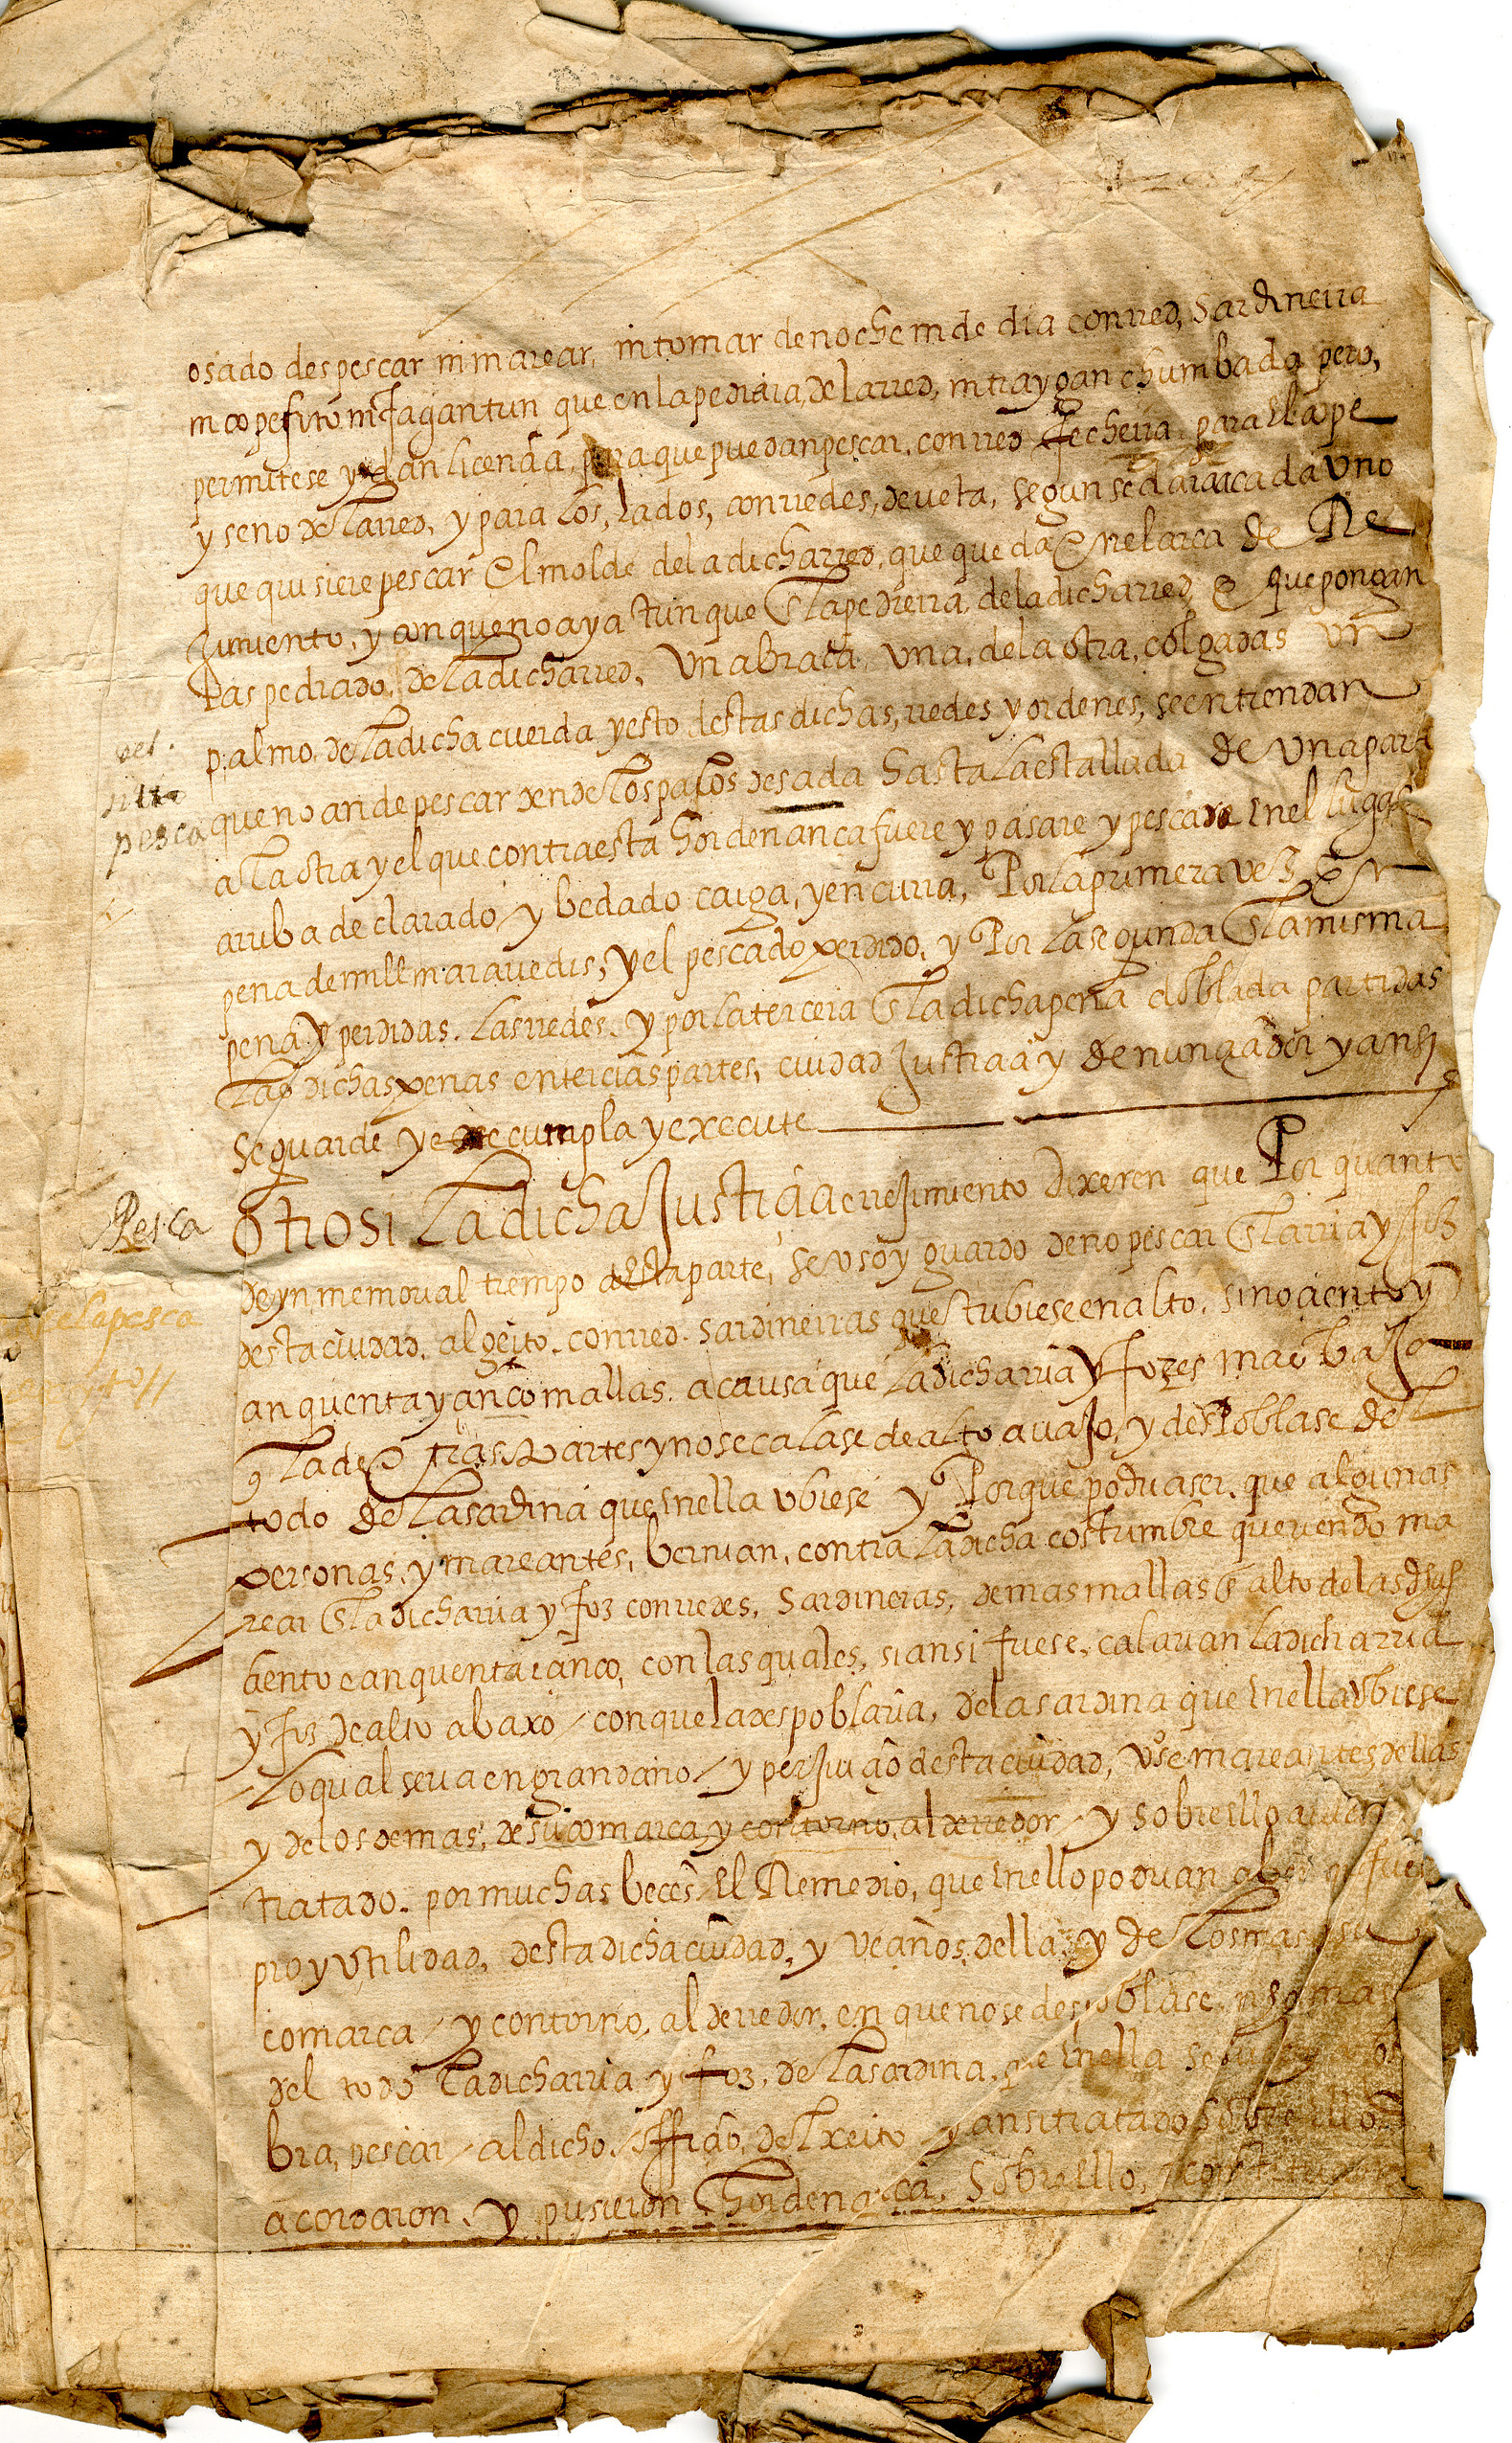 osado despescar ni marear, ni tomar de noche ni de dia con rred, sardineira
ni copefito ni fagan tun que en la pedraia, de la rred, ni traygan chumbada pero,
permitese y dan licençia, para que puedan pescar, con rred fecheira, para el ape
y seno de la rred, y para los, lados, con rredes, de veta, segun se dara a cada uno
que quisiere pescar el molde de la dicha rred, que queda en el arca de Re
gimiento, y con que no aya tun que en la pedreira, de la dicha rred, e que pongan
las pedrado, de la dicha rred, un abraça, una, de la otra, colgadas un
palmo, de la dicha cuerda y esto destas dichas, redes y ordenes, se entiendan
que no an de pescar dende los pasos de sada hasta la estallada de una parte
a la otra y el que contra esta hordenança fuere y pasare y pescare en el lugar
arriba declarado y bedado caiga, y encurra, Por la primera vez en
pena de mill maravedis, y el pescado perdido, y Por la segunda en la misma
pena y perdidas, las rredes, y por la tercera en la dicha pena doblada partidas
las dichas penas en tercias partes, ciudad Justicia y denunçiador y ansi
se guarde y se cumpla y execute
Pesca
Otrosi La dicha Justiçia e rrejimiento dixeren que Por quanto
de ynmemorial tiempo a esta parte, se uso y guardo de no pescar en la rria y foz
desta ciudad, al geito, con rred, sardineiras que estubiese en alto, sino çiento y
çinquenta y çinco mallas, a causa que la dicha rria y fozes mas baJo
q la de otras Partes y no se calase de alto avaJo, y desPoblase del
todo de la sardina que en ella ubiese y Porque podria ser, que algunas
personas, y mareantes, bernian, contra la dicha costumbre queriendo ma
rear en la dicha rria y foz con redes, sardineras, de mas mallas en alto de las dhas
çiento e çinquenta i çinco, con las quales, si ansi fuese, calarian la dicha rria
y foz de alto abaxo / con que la despoblaria, de la sardina que en ella ubiese
Lo qual seria en gran daño / y perJuiçio desta ciudad, vos e mareantes della
y de los demas, de su comarca y contorno, al derredor / y sobre ello avien
tratado, por muchas beces El Remedio, que en ello podrian aber q fuese
pro y utilidad, desta dicha ciudad, y veçinos della, y de los mas
comarca / y contorno, al derredor, en que no se despoblase
del todo La dicha rria y foz, de la sardina, que en ella
bra, pescar / al dicho, offiçio, del xeito / y ansi tratado sobre ello
acordaron, y pusieron hordenança, sobre ello,
pesca
de la pesca